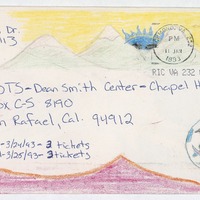 Dr.
PM
JAN
1993
RIC VA 232
OTS-Dean Smith Center-Chapel H
ox C-S 8190
n Rafael, Cal. 94912
-3/24/93-3 tickets
-3/25/93-3 tickets